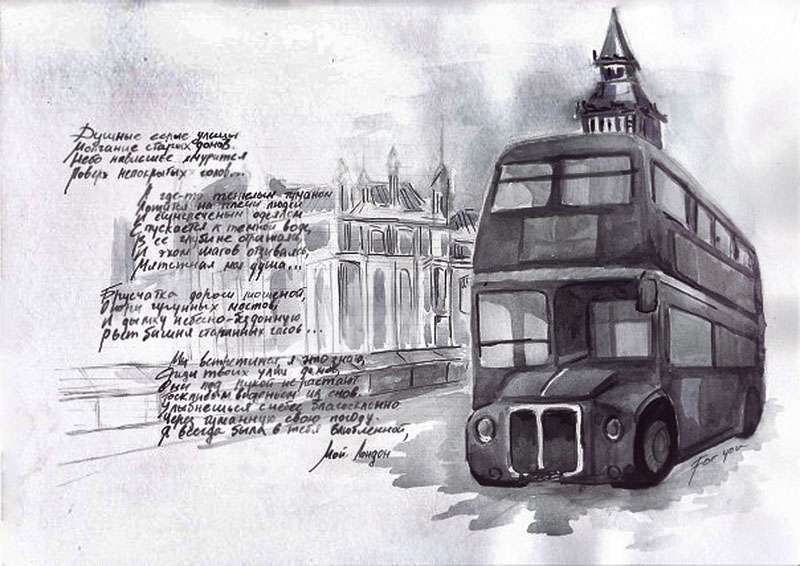 Душные серые улицы
Молчание старых домов.
Небо нависшее хмурится
Поверх непокрытых голов...
А где-то тяжелым туманом
Ложатся на плечи людей
И одеялом
Спускается к темной воде,
В ее глубине отражаясь,
И эхом шагов отзываясь,
Мятежная моя душа...
Брусчатка дороги мощеной,
Опоры чугунных мостов,
И дымку небесно-бездонную
Рвет башня старинных часов...
Мы встретимся, я это знаю,
Среди твоих улиц, домов,
под рукой не растают
Тоскливым виденьем из снов.
Улыбнешься с небес благосклонно
Через туманную свою погоду.
Я всегда была в тебя влюбленной,
Мой Лондон
For you